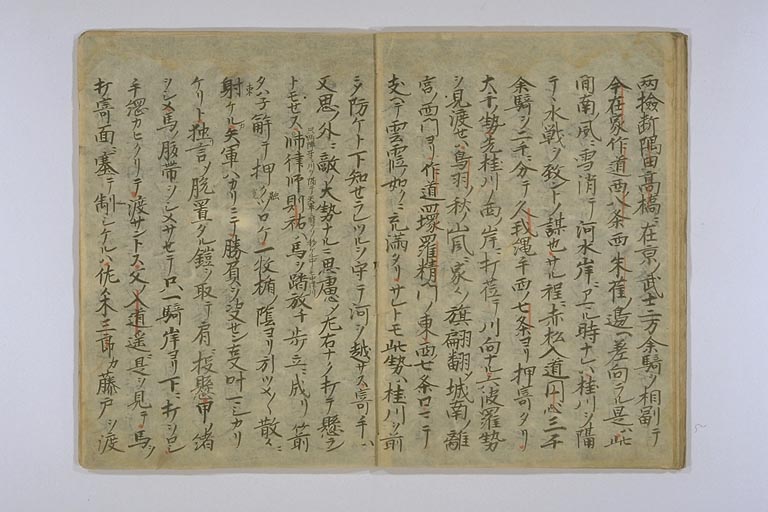 両檢断隅田高橋ニ在京ノ武士二万余騎ヲ相副テ
今在家作道西八条西朱雀ノ邊ヘ差向ラル是ハ此
間南風ニ雪消テ河水岸ニアマル時ナレハ桂川ヲ隔
テヽ水戦ヲ致トノ謀也サル程ニ赤松入道円心三千
余騎ヲ二手ニ分テ久我縄手西ノ七条ヨリ押寄タリ
大手ノ勢ハ桂川ノ西ノ岸ニ打莅テ川向ナル六波羅勢
ヲ見渡セハ鳥羽ノ秋ノ山風ニ家々ノ旗翩翻ト城南ノ離
宮ノ西門ヨリ作道四塚羅精門ノ東西七条口マテ
支ヘテ雲霞ノ如クニ充満タリサレトモ此勢ハ桂川ヲ前
ニシテ防ケト下知セラレツルヲ守テ河ヲ越サス寄手ハ
又思ノ外ニ敵ノ大勢ナルニ思慮シテ左右ナク打テ懸ラ
トモセス 帥律師則祐ハ馬ヲ踏放チ歩立ニ成リ箭
タハ子解テ押クツロケ一枚楯ノ陰ヨリ引ツメ〱散々ニ
射ケルカ矢軍ハカリニテ勝負ヲ決センコト叶マシカリ
ケリト独言ヲ脱置タル鎧ヲ取テ肩ニ投懸申ノ緒
ヲシメ馬ノ腹帯ヲシメサセテ只一騎岸ヨリ下ニ打ヲロシ
手縄カヒクリテ渡サントス父ノ入道遥ニ是ヲ見テ馬ヲ
打寄面ニ塞テ制シケルハ佐々木三郎カ藤戸ヲ渡